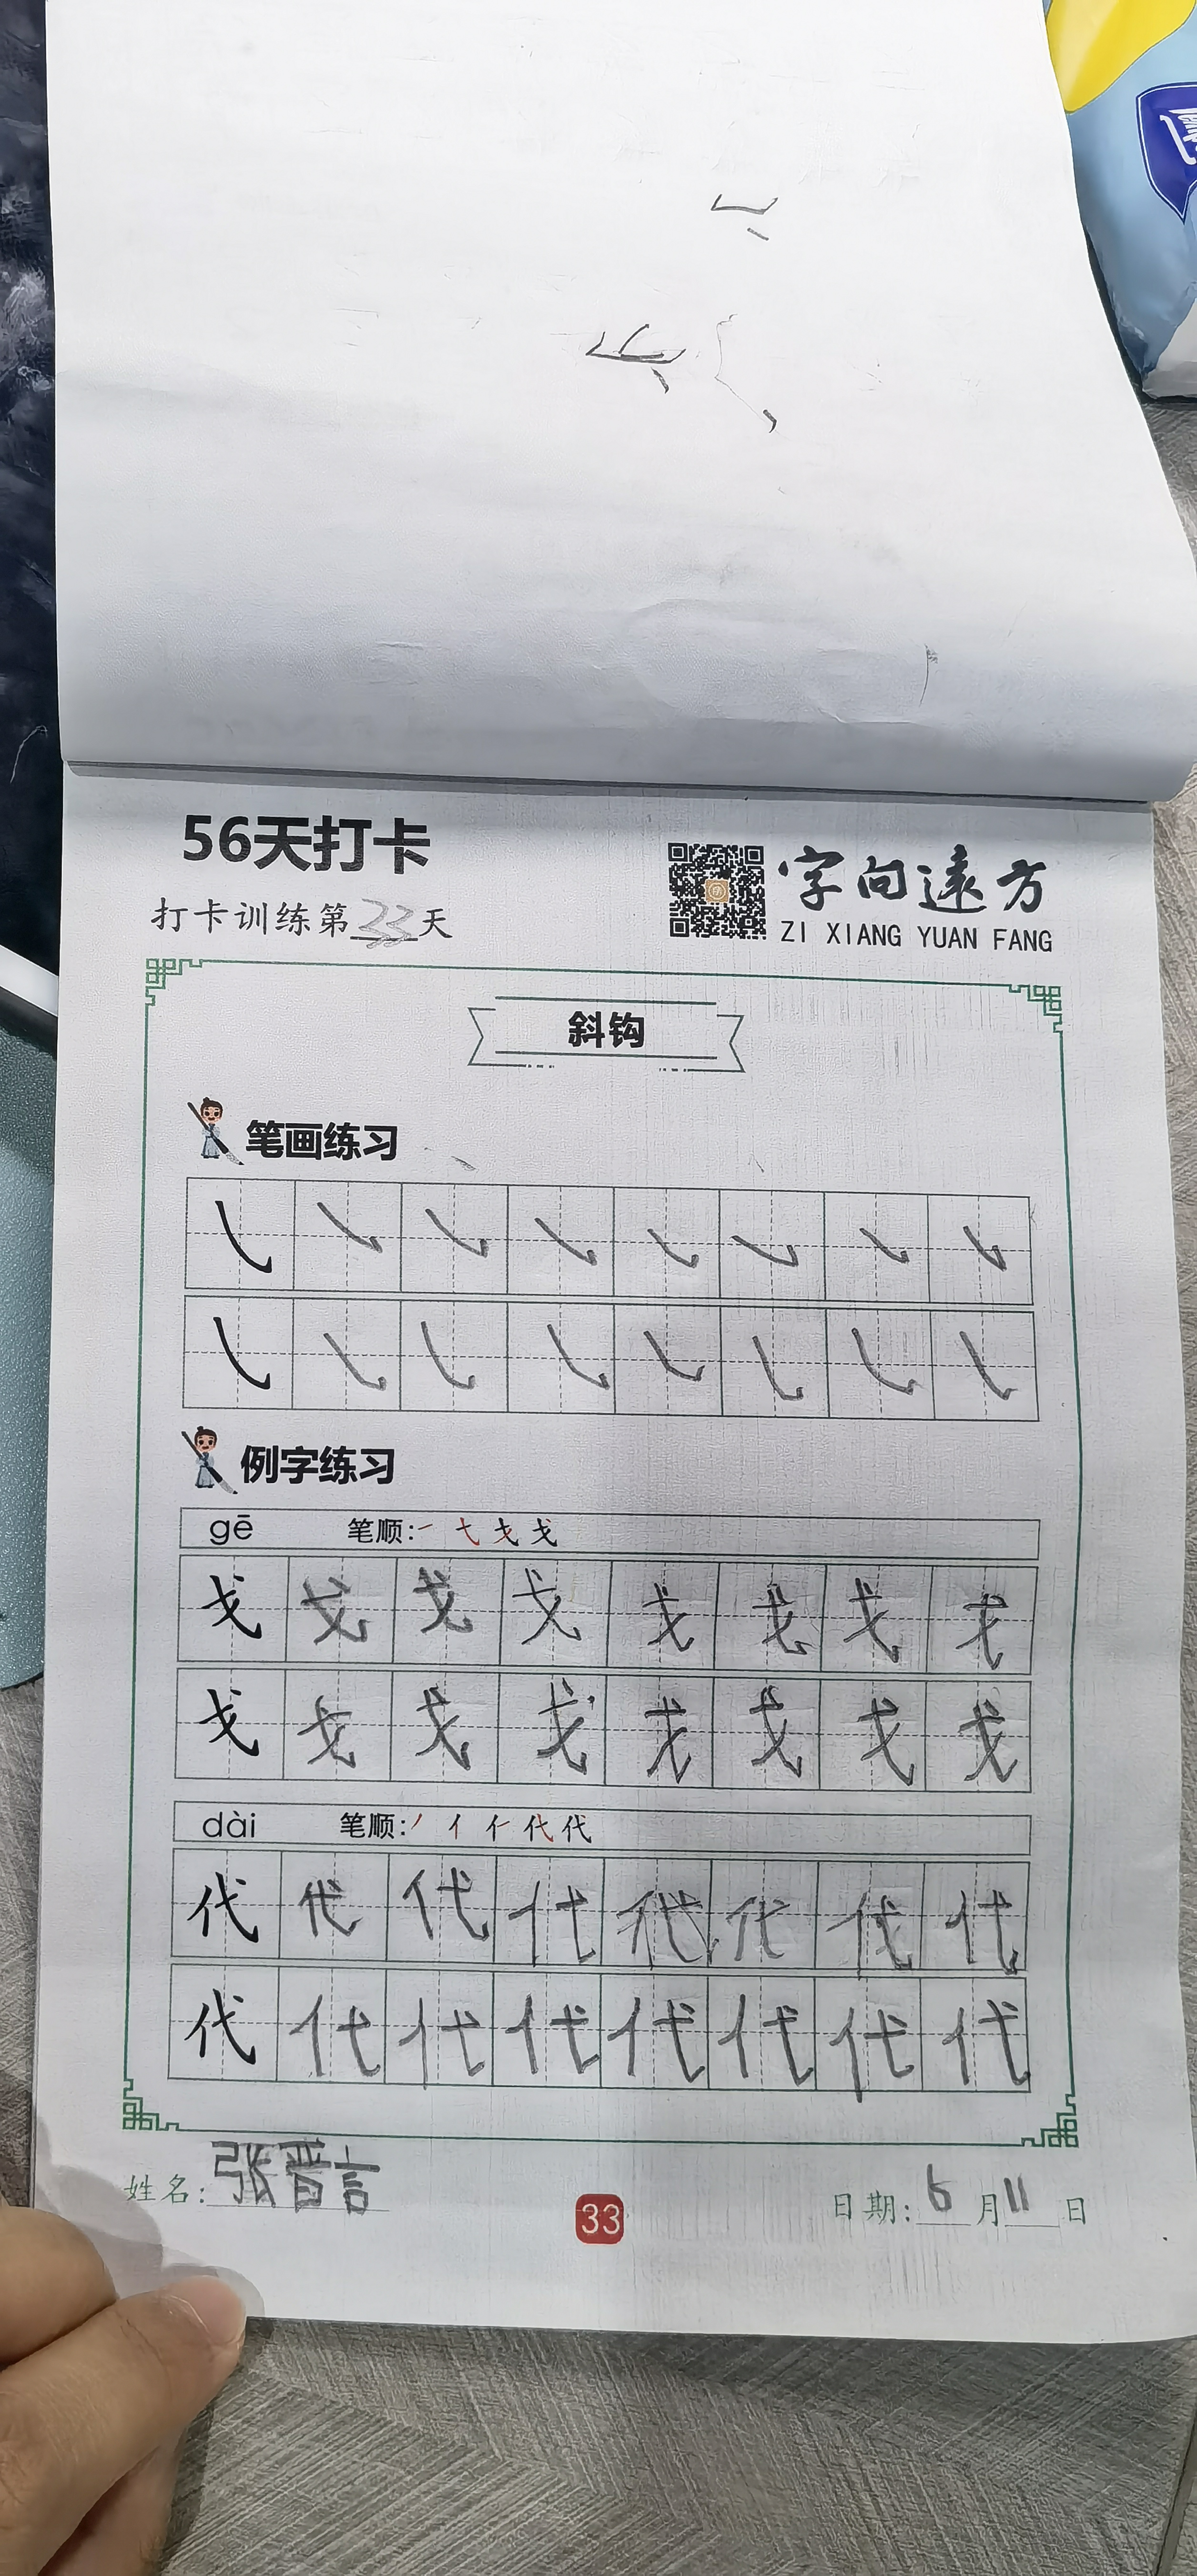 56天打卡
打卡训练第33天
字向远方
ZI XIANG YUAN FANG
斜钩
笔画练习
例字练习
gē 笔顺:
戈 戈 戈 戈 戈 戈 戈 戈
戈 戈 戈 戈 戈 戈 戈 戈
dài 笔顺:
代 代 代 代 代 代 代 代
代 代 代 代 代 代 代 代
姓名: 张晋言
33
日期: 6 月 11 日